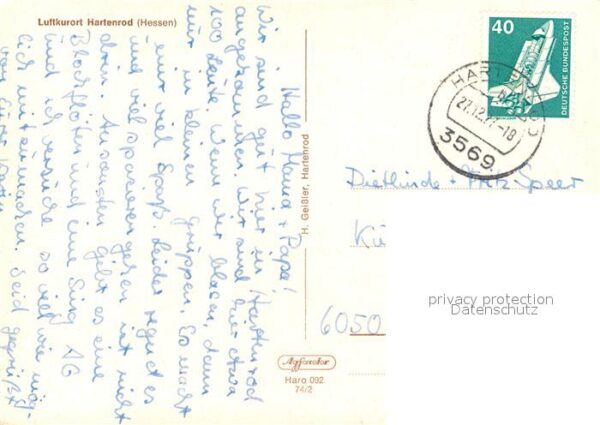 Luftkurort Hartenrod (Hessen)
Hallo Mama + Papa!
Wir sind gut hier in Hartenrod
angekommen. Wir sind hier etwa
100 Leute. Wenn wir blasen, dann
nur in kleinen Gruppen. Es macht
mir viel Spaß. Leider regnet es
und viel spazierengehen ist nicht
drin. Ansonsten gibt es eine
Blockflöten und eine Sing AG
und ich versuche so viel wie mög-
lich mitzumachen. Seid gegrüßt
von
H. Geißler, Hartenrod
Agfacolor
Haro 092
74/2
40
DEUTSCHE BUNDESPOST
HARTENROD
27.12.77-18
3569
Dietlinde + Fritz Speer
6050
privacy protection
Datenschutz